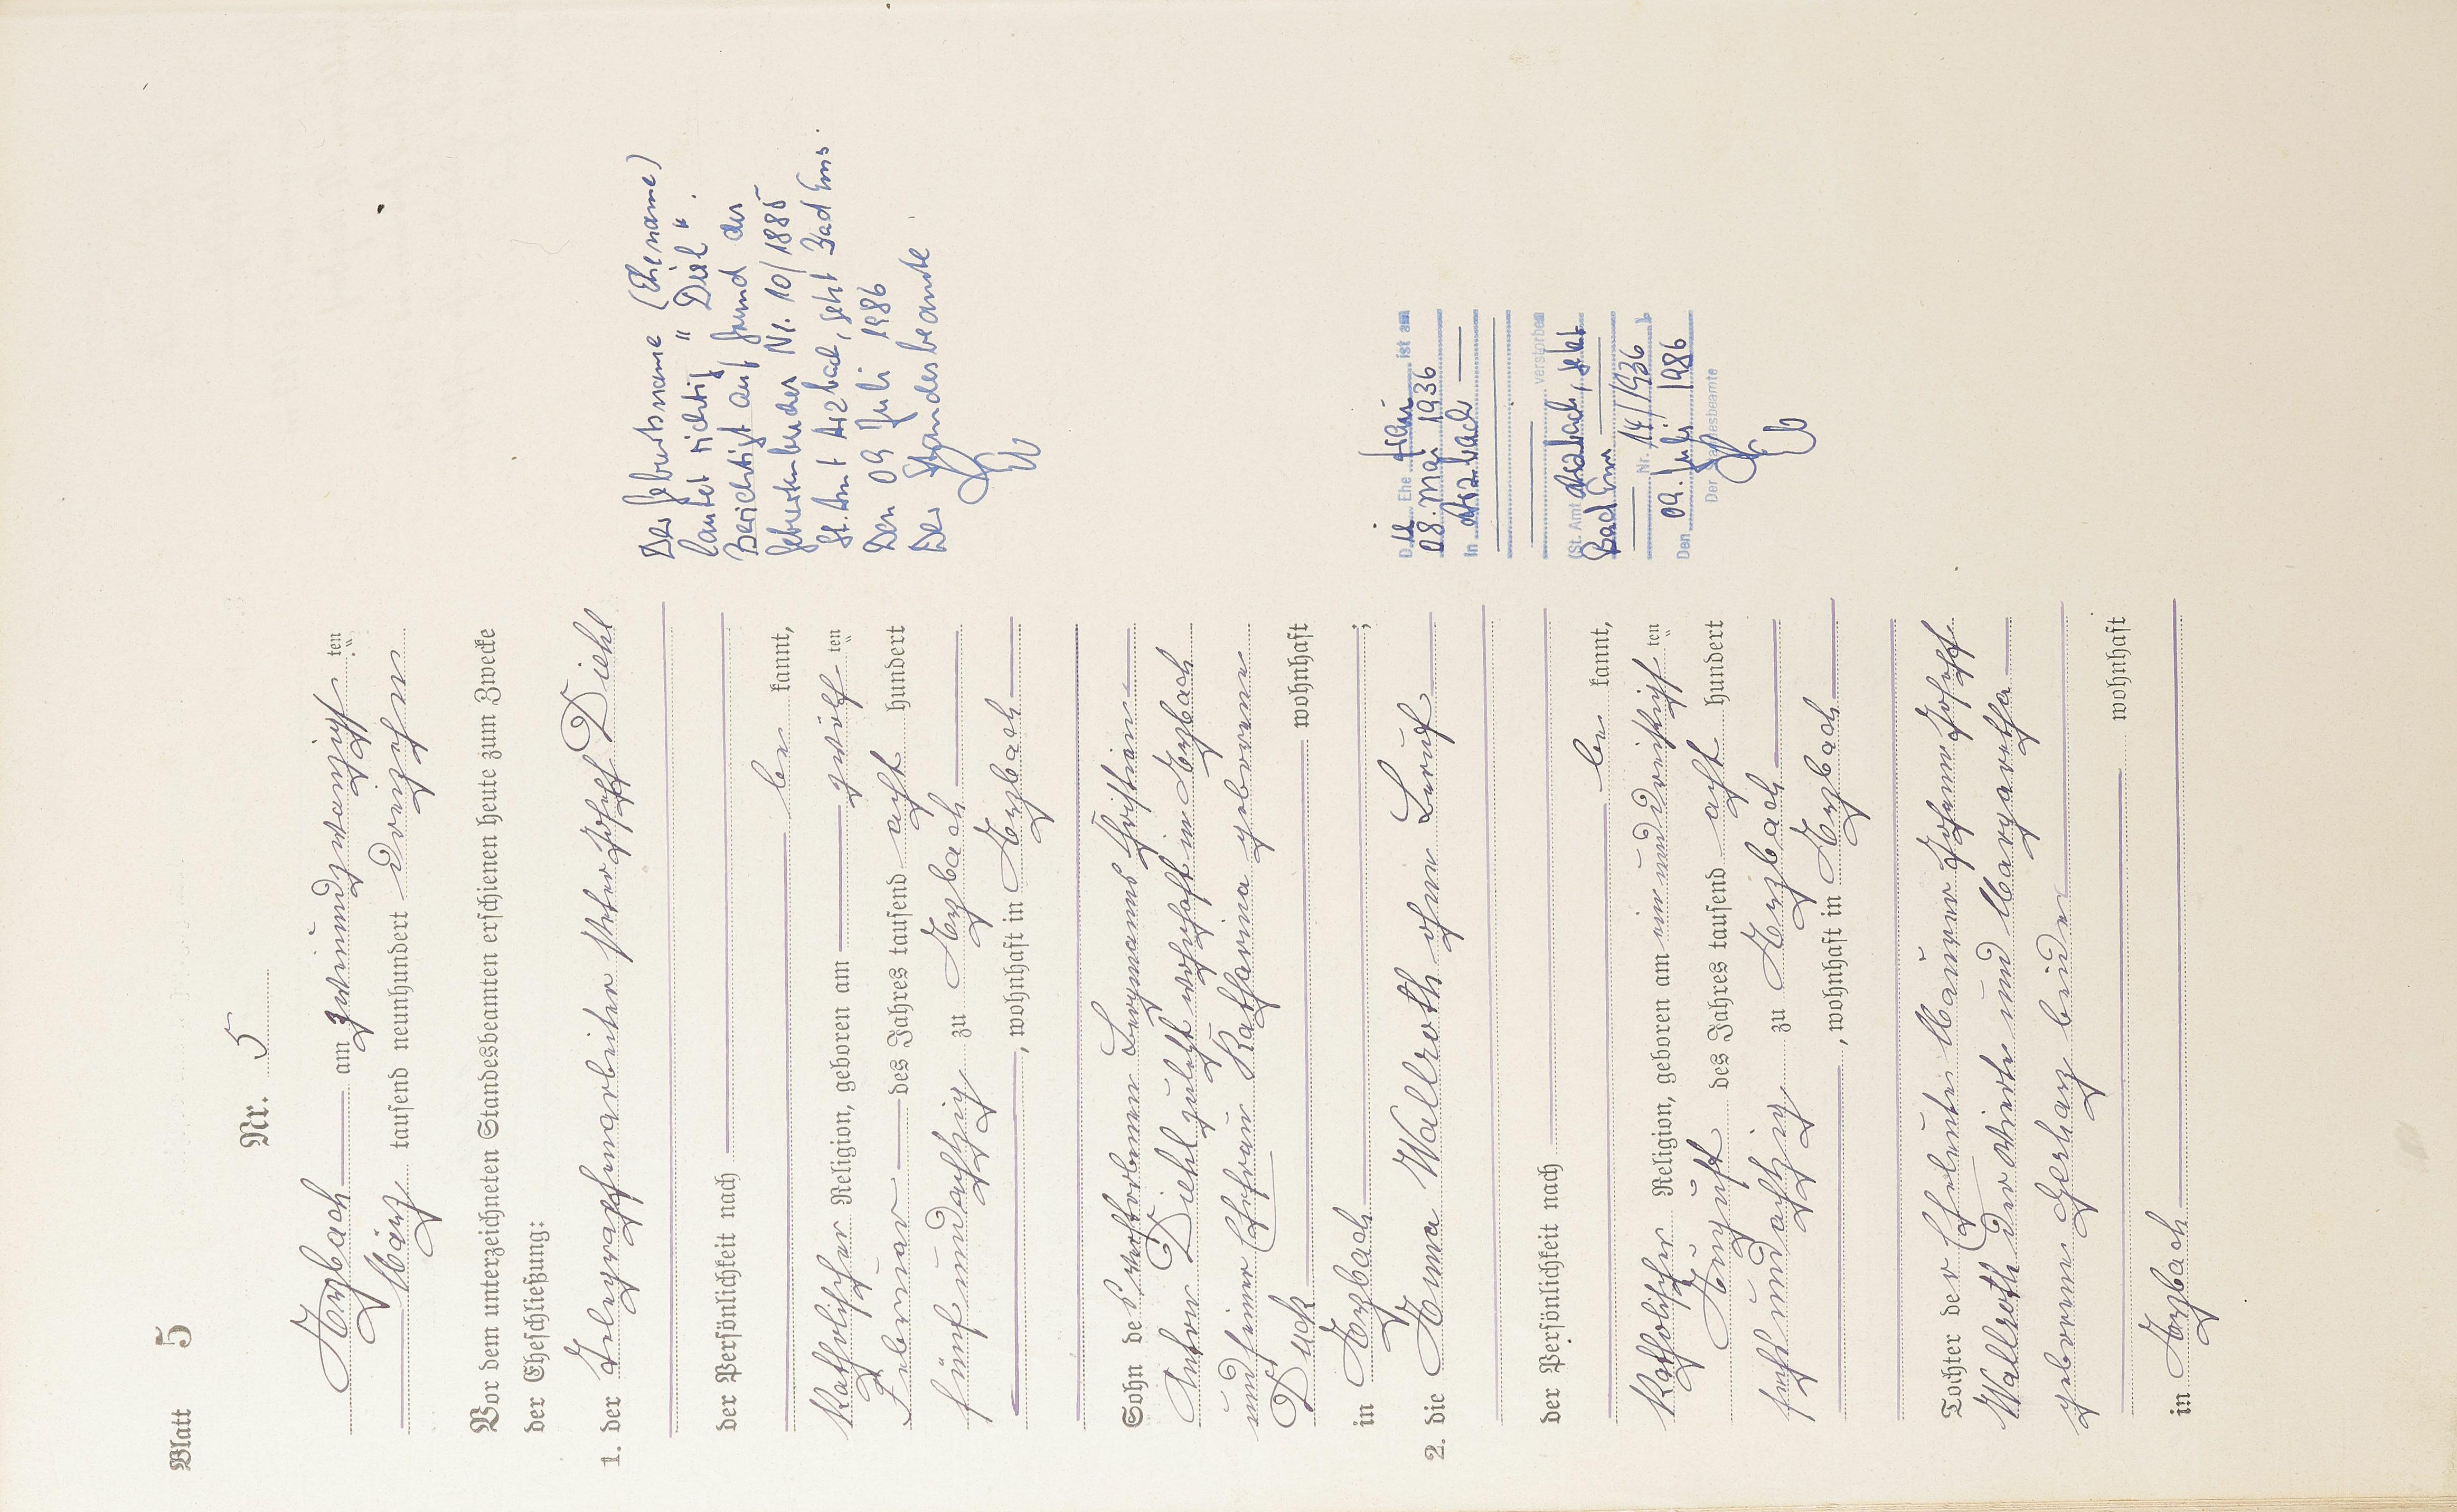 Blatt 5
Nr. 5
Arzbach am zweiundzwanzigsten
März tausend neunhundert dreizehn
Vor dem unterzeichneten Standesbeamten erschienen heute zum Zwecke
der Eheschließung:
1. der Telegraphenarbeiter Peter Josef Diehl
der Persönlichkeit nach
be kannt,
katholischer Religion, geboren am zwölf ten
Februar des Jahres tausend acht hundert
fünfundachtzig zu Arzbach
, wohnhaft in Arzbach
Sohn des verstorbenen Bergmanns Christian
Diehl zuletzt wohnhaft in Arzbach
und seiner Ehefrau Katharina geborene
Duck
wohnhaft
in Arzbach ;
2. die Anna Wallroth ohne Beruf
der Persönlichkeit nach
be kannt,
katholischer Religion, geboren am einunddreißigsten
August des Jahres tausend acht hundert
sechsundachtzig zu Arzbach
, wohnhaft in Arzbach
Tochter der Eheleute Maurer Johann Josef
Wallroth und Margaretha
geborene Gerharz beide
wohnhaft
in Arzbach
Der Geburtsname (Ehename)
lautet richtig "Diel".
Berichtigt auf Grund des
Geburtenbuches Nr. 10/1885
St. Amt Arzbach, jetzt Bad Ems.
Den 09 Juli 1986
Der Standesbeamte
Die Ehefrau ist am
08. Mai 1936
In Arzbach
verstorben
(St. Amt Arzbach, jetzt
Bad Ems
Nr. 14/1936)
Den 09. Juli 1986
Der Standesbeamte